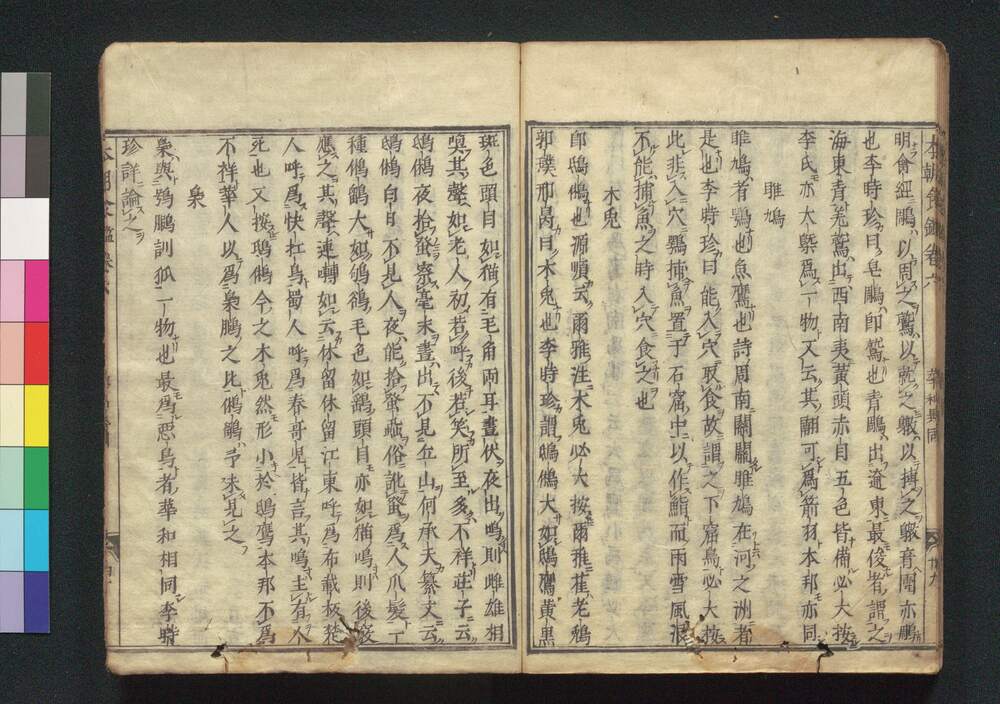 本朝食鑑卷六
明禽經鵰以周之鷲以就之鷻以搏之鷻音團亦鵰
也李時珍曰皂鵰即鷲也青鵰出遼東最俊者謂之
海東青羌鷲出西南夷黃頭赤目五色皆備必大按
李氏亦大槩爲一物又云其翮可爲箭羽本邦亦同
雎鳩
雎鳩者鶚也魚鷹也詩周南關關雎鳩在河之洲者
是也李時珍曰能入穴取食故謂之下窟鳥必大按
此非入穴鶚捕魚置于石窟中以作鮨而雨雪風浪
不能捕魚之時入穴食之也
木兎
即鴟鵂也源順云爾雅注木兎必大按爾雅萑老鵵
郭璞邢昺曰木兎也李時珍謂鴟鵂大如鴟鷹黃黑
斑色頭目如猫有毛角兩耳晝伏夜出鳴則雌雄相
喚其聲如老人初若呼後若笑所至多不祥莊子云
鴟鵂夜拾蚤察毫末晝出不見丘山何承天纂文云
鴟鵂白日不見人夜能拾蚤蝨俗訛蚤爲人爪髮一
種鵂鶹大如鴝鵒毛色如鷂頭目亦如猫鳴則後竅
應之其聲連囀如云休留休留江東呼爲布載板楚
人呼爲快扛鳥蜀人呼爲春哥兒皆言其鳴主有人
死也又按鴟鵂今之木兎然形小於鴟鷹本邦不爲
不祥華人以爲梟鵩之比鵂鶹予未見之
梟
梟與鴞鵩訓狐一物也最爲惡鳥者華和相同李時
珍詳論之